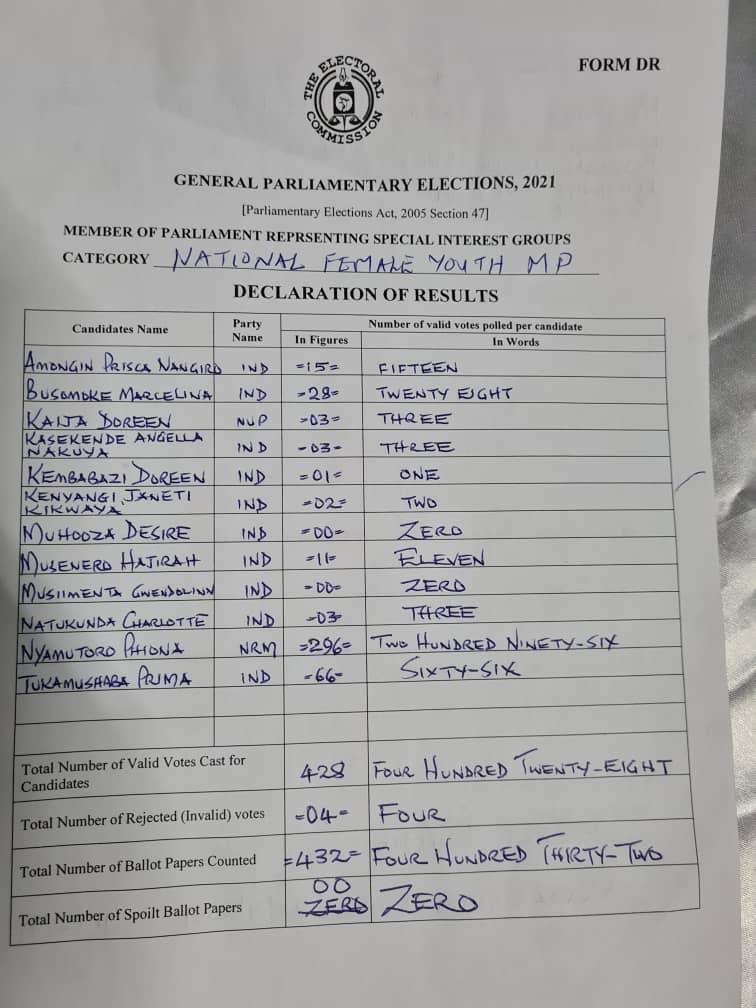 THE ELECTORAL COMMISSION
FORM DR
GENERAL PARLIAMENTARY ELECTIONS, 2021
[Parliamentary Elections Act, 2005 Section 47]
MEMBER OF PARLIAMENT REPRSENTING SPECIAL INTEREST GROUPS
CATEGORY NATIONAL FEMALE YOUTH MP
DECLARATION OF RESULTS
Candidates Name Party Name Number of valid votes polled per candidate
In Figures In Words
AMONGIN PRISCA NANGIRO IND =15= FIFTEEN
BUSOMOKE MARCELINA IND =28= TWENTY EIGHT
KAIJA DOREEN NUP =03= THREE
KASEKENDE ANGELLA
NAKUYA IND -03- THREE
KEMBABAZI DOREEN IND =01= ONE
KENYANGI JANETI
KIKWAYA IND =02= TWO
MUHOOZA DESIRE IND =00= ZERO
MUSENERO HAJIRAH IND =11= ELEVEN
MUSIIMENTA GWENDOLINN IND =00= ZERO
NATUKUNDA CHARLOTTE IND =03= THREE
NYAMUTORO PHIONA NRM =296= TWO HUNDRED NINETY-SIX
TUKAMUSHABA PRIMA IND =66= SIXTY-SIX
Total Number of Valid Votes Cast for
Candidates 428 FOUR HUNDRED TWENTY-EIGHT
Total Number of Rejected (Invalid) votes =04= FOUR
Total Number of Ballot Papers Counted =432= FOUR HUNDRED THIRTY-TWO
00
Total Number of Spoilt Ballot Papers ZERO ZERO